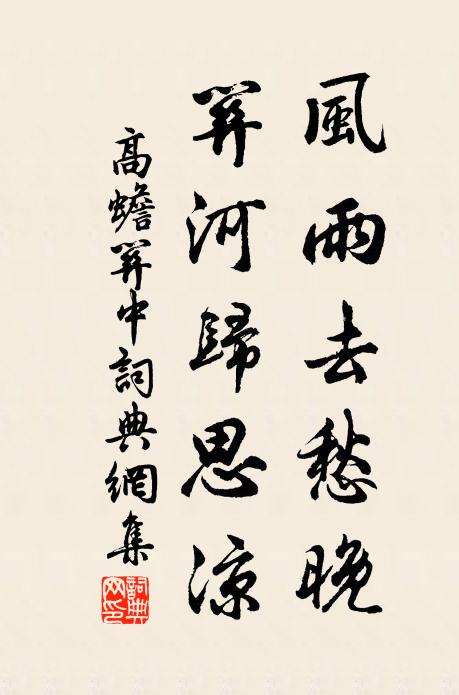 風雨去愁晚
關河歸思涼
高蟾關中詞典網集
詞典
网印